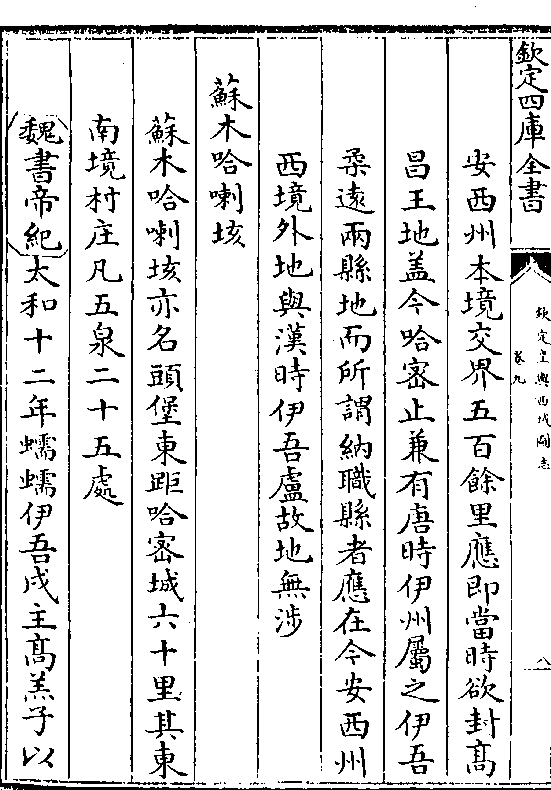 欽定四庫全書
欽定皇輿西域圖志
卷九
八
安西州本境交界五百餘里應即當時欲封髙
昌王地盖今哈密止兼有唐時伊州屬之伊吾
柔遠兩縣地而所謂納職縣者應在今安西州
西境外地與漢時伊吾盧故地無涉
蘇木哈喇垓
蘇木哈喇垓亦名頭堡東距哈密城六十里其東
南境村庄凡五泉二十五處
魏書帝紀太和十二年蠕蠕伊吾戍主髙羔子以